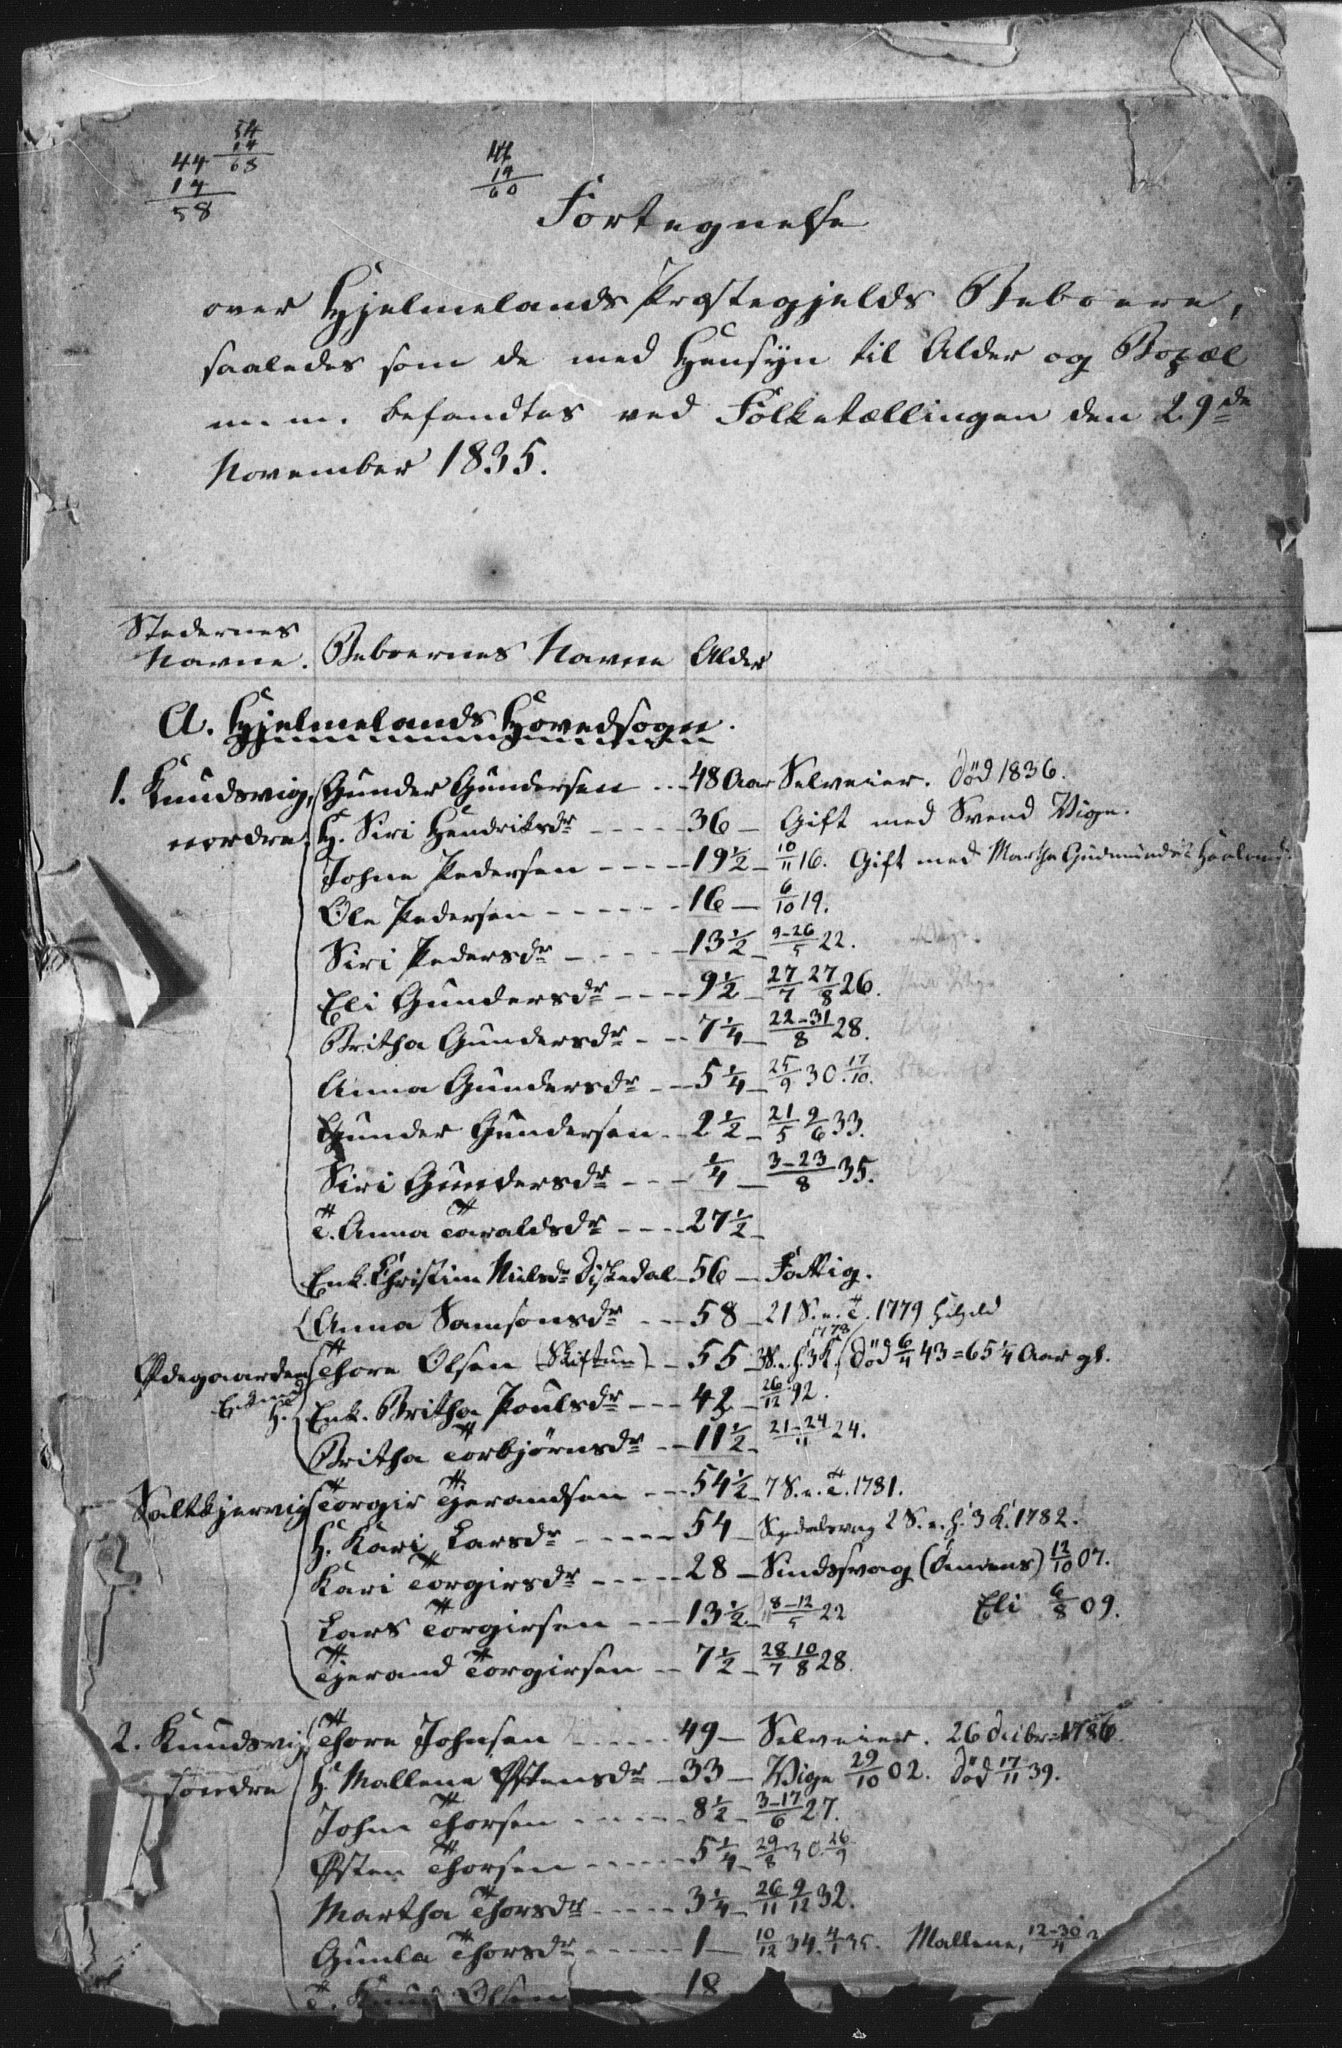 54
14
68
44
14
58
44
14
60
Fortegnelse
over Hjelmelands Præstegjelds Beboere,
saaledes som de med Hensyn til Alder og Bopæl
m. m. befandtes ved Folketællingen den 29de
November 1835.
Stedernes Navne. Beboernes Navne Alder
A. Hjelmelands Hovedsogn.
1. Knudsvig, Gunder Gundersen 48 Aar Selveier. Død 1836.
nordre. H. Siri Hendriksdr 36 Gift med Svend Vige.
Johne Pedersen 19 1/2 10/11 16. Gift med Martha Gudmundsd.
Ole Pedersen 16 6/10 19.
Siri Pedersdr 13 1/2 9-26/5 22.
Eli Gundersdr 9 1/2 27/7 27/8 26.
Britha Gundersdr 7 1/4 22-31/8 28.
Anna Gundersdr 5 1/4 25/9 30. 17/10.
Gunder Gundersen 2 1/2 21/5 9/6 33.
Siri Gundersdr 1/4 3-23/8 35.
T. Anna Taraldsdr 27 1/2
Enk. Christin Nielsdr 56 Fattig.
Anna Samsonsdr 58 21 S. e. T. 1779
1778
Ødegaarden Thore Olsen (Skiftun) 55 Død 6/4 43 = 65 1/4 Aar gl.
Enk. Britha Poulsdr 42 26/12 92.
Britha Torbjørnsdr 11 1/2 21-24/11 24.
Saltkjervig Torgir Tjerandsen 54 1/2 7 S. e. T. 1781.
H. Kari Larsdr 54 2 S. e. H. 3 K. 1782.
Kari Torgirsdr 28 Sindssvag 12/10 07.
Lars Torgirsen 13 1/2 8-12/5 22 Eli 6/8 09.
Tjerand Torgirsen 7 1/2 28/7 10/8 28.
2. Knudsvig Thore Johnsen 49 Selveier. 26 Decbr 1786.
søndre H. Mallene Østensdr 33 Vige 29/10 02. Død 17/11 39.
John Thorsen 8 1/2 3-17/6 27.
Østen Thorsen 5 1/4 29/8 30 26/9
Martha Thorsdr 3 1/4 26/11 9/12 32.
Gunla Thorsdr 1 10/12 34. 4/1 35. Mallene, 12-30/4
T. Knud Olsen 18